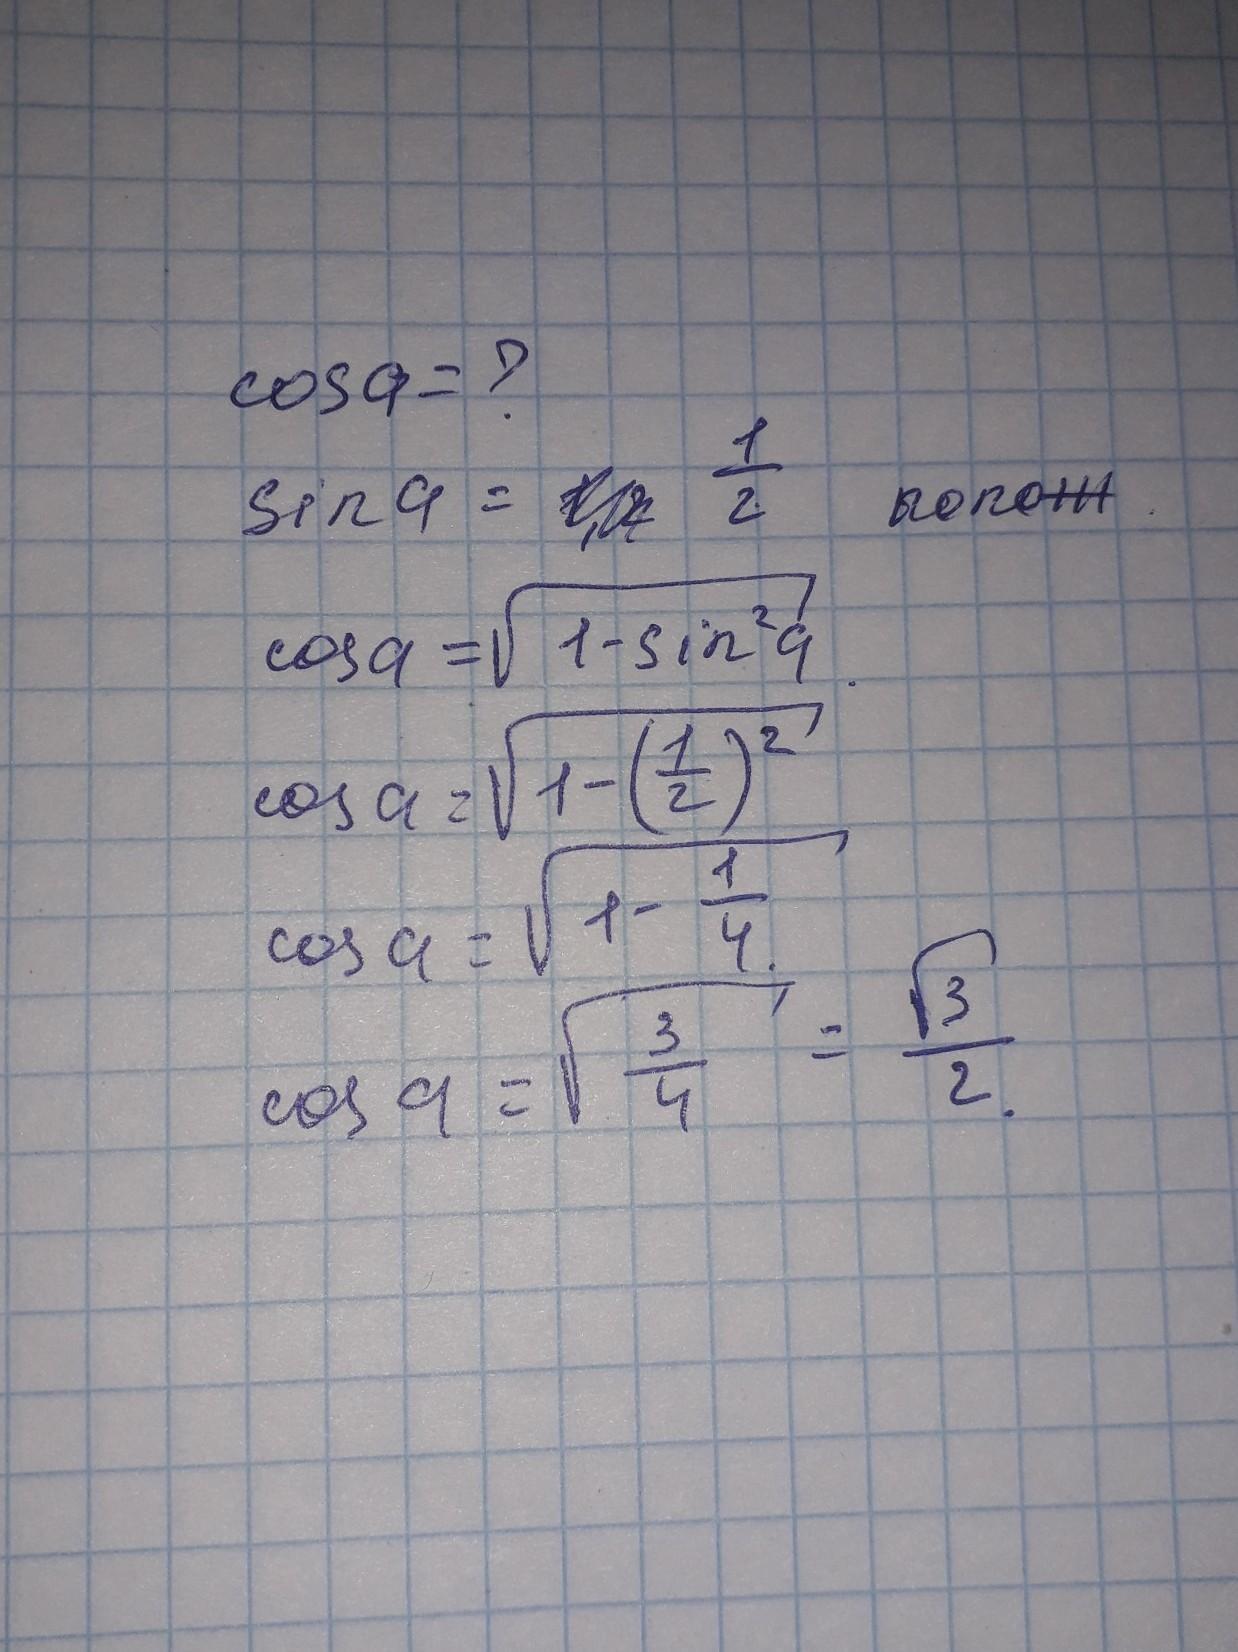 cos a = ?
sin a = 1/2 полож.
cos a = √(1 - sin² a).
cos a = √(1 - (1/2)²)
cos a = √(1 - 1/4).
cos a = √(3/4) = √3/2.